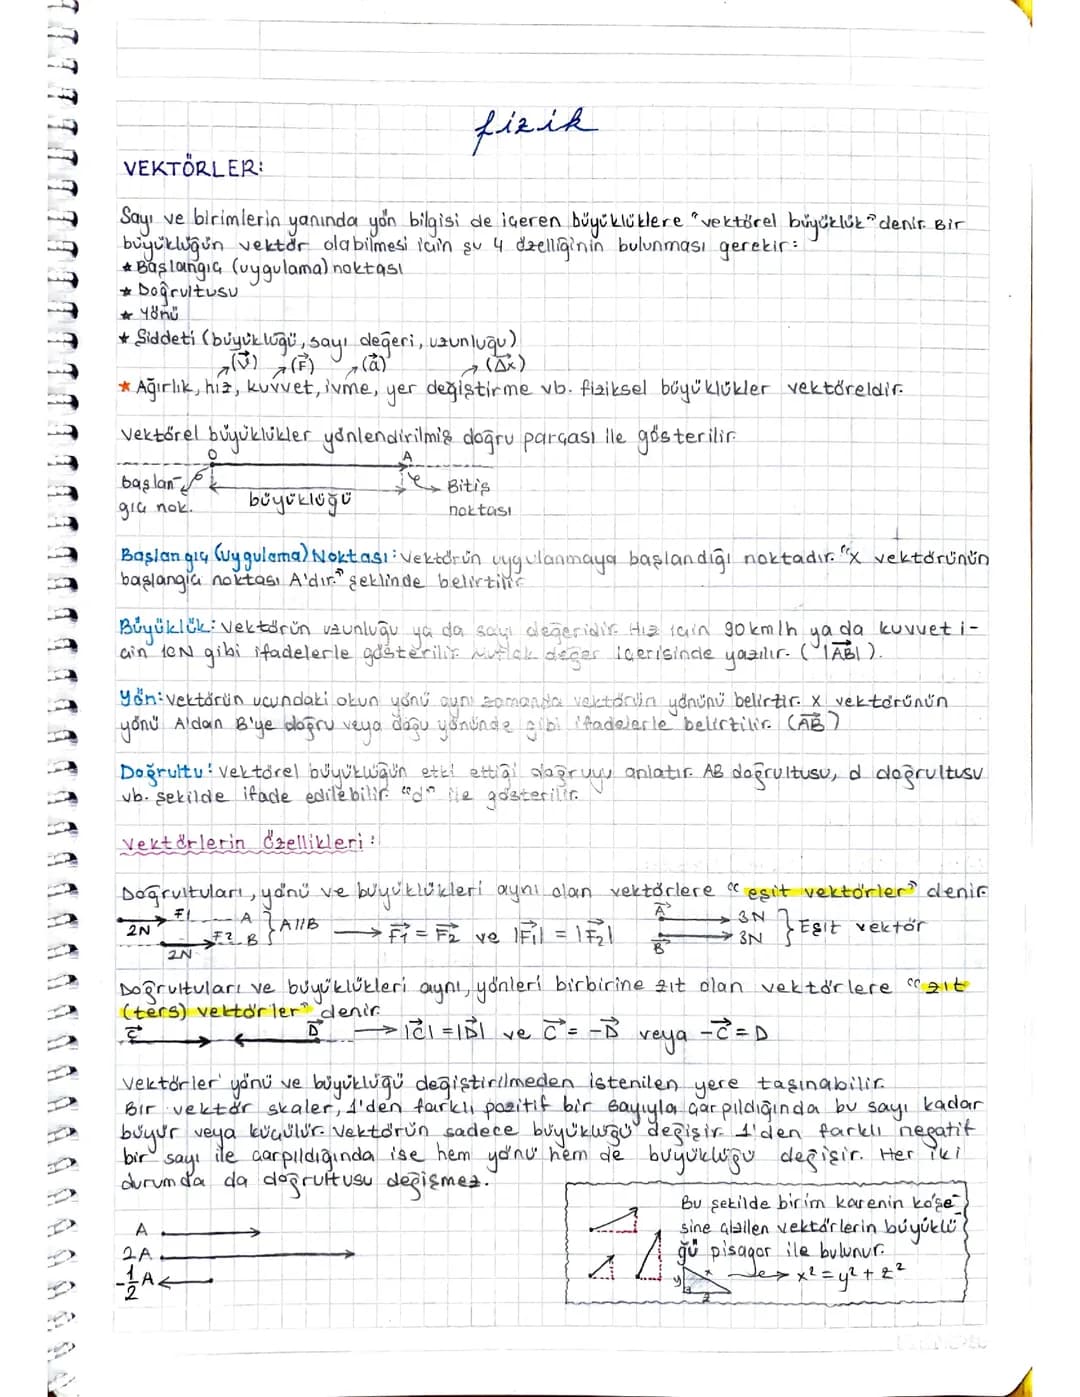 fizik
VEKTÖRLER:
Sayı ve birimlerin yanında yön bilgisi de içeren büyüklüklere "vektörel büyüklük" denir. Bir
büyüklüğün vektör olabilmesi için şu 4 özelliğinin bulunması gerekir:
* Başlangıç (uygulama) noktası
* Doğrultusu
* Yönü
* Şiddeti (büyüklüğü, sayı değeri, uzunluğu)
(V⃗) (F⃗) (a⃗) (Δx⃗)
* Ağırlık, hız, kuvvet, ivme, yer değiştirme vb. fiziksel büyüklükler vektöreldir.
Vektörel büyüklükler yönlendirilmiş doğru parçası ile gösterilir.
O A
başlan- Bitiş
gıç nok. büyüklüğü noktası
Başlangıç (uygulama) Noktası: Vektörün uygulanmaya başlandığı noktadır. "x vektörünün
başlangıç noktası A'dır." şeklinde belirtilir.
Büyüklük: Vektörün uzunluğu ya da sayı değeridir. Hız için 90 km/h ya da kuvvet i-
çin 10N gibi ifadelerle gösterilir. Mutlak değer içerisinde yazılır. (|AB⃗|).
Yön: Vektörün ucundaki okun yönü aynı zamanda vektörün yönünü belirtir. x vektörünün
yönü A'dan B'ye doğru veya doğu yönünde gibi ifadelerle belirtilir. (AB⃗)
Doğrultu: Vektörel büyüklüğün etki ettiği doğruyu anlatır. AB doğrultusu, d doğrultusu
vb. şekilde ifade edilebilir. "d" ile gösterilir.
Vektörlerin Özellikleri:
Doğrultuları, yönü ve büyüklükleri aynı olan vektörlere "eşit vektörler" denir.
2N F1 A
2N F2 B } A//B → F⃗1 = F⃗2 ve |F⃗1| = |F⃗2| A⃗ 3N
B⃗ 3N } Eşit vektör
Doğrultuları ve büyüklükleri aynı, yönleri birbirine zıt olan vektörlere "zıt
(ters) vektörler" denir.
C⃗ D⃗ → |C⃗| = |D⃗| ve C⃗ = -D⃗ veya -C⃗ = D
Vektörler yönü ve büyüklüğü değiştirilmeden istenilen yere taşınabilir.
Bir vektör skaler, 1'den farklı pozitif bir sayıyla çarpıldığında bu sayı kadar
büyür veya küçülür. Vektörün sadece büyüklüğü değişir. 1'den farklı negatif
bir sayı ile çarpıldığında ise hem yönü hem de büyüklüğü değişir. Her iki
durumda da doğrultusu değişmez.
A
2A
-1/2 A
Bu şekilde birim karenin köşe-
sine çizilen vektörlerin büyüklü
ğü pisagor ile bulunur.
y x z → x² = y² + z²